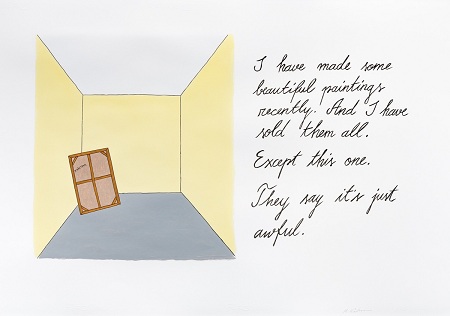 I have made some
beautiful paintings
recently. And I have
sold them all.
Except this one.
They say it's just
awful.